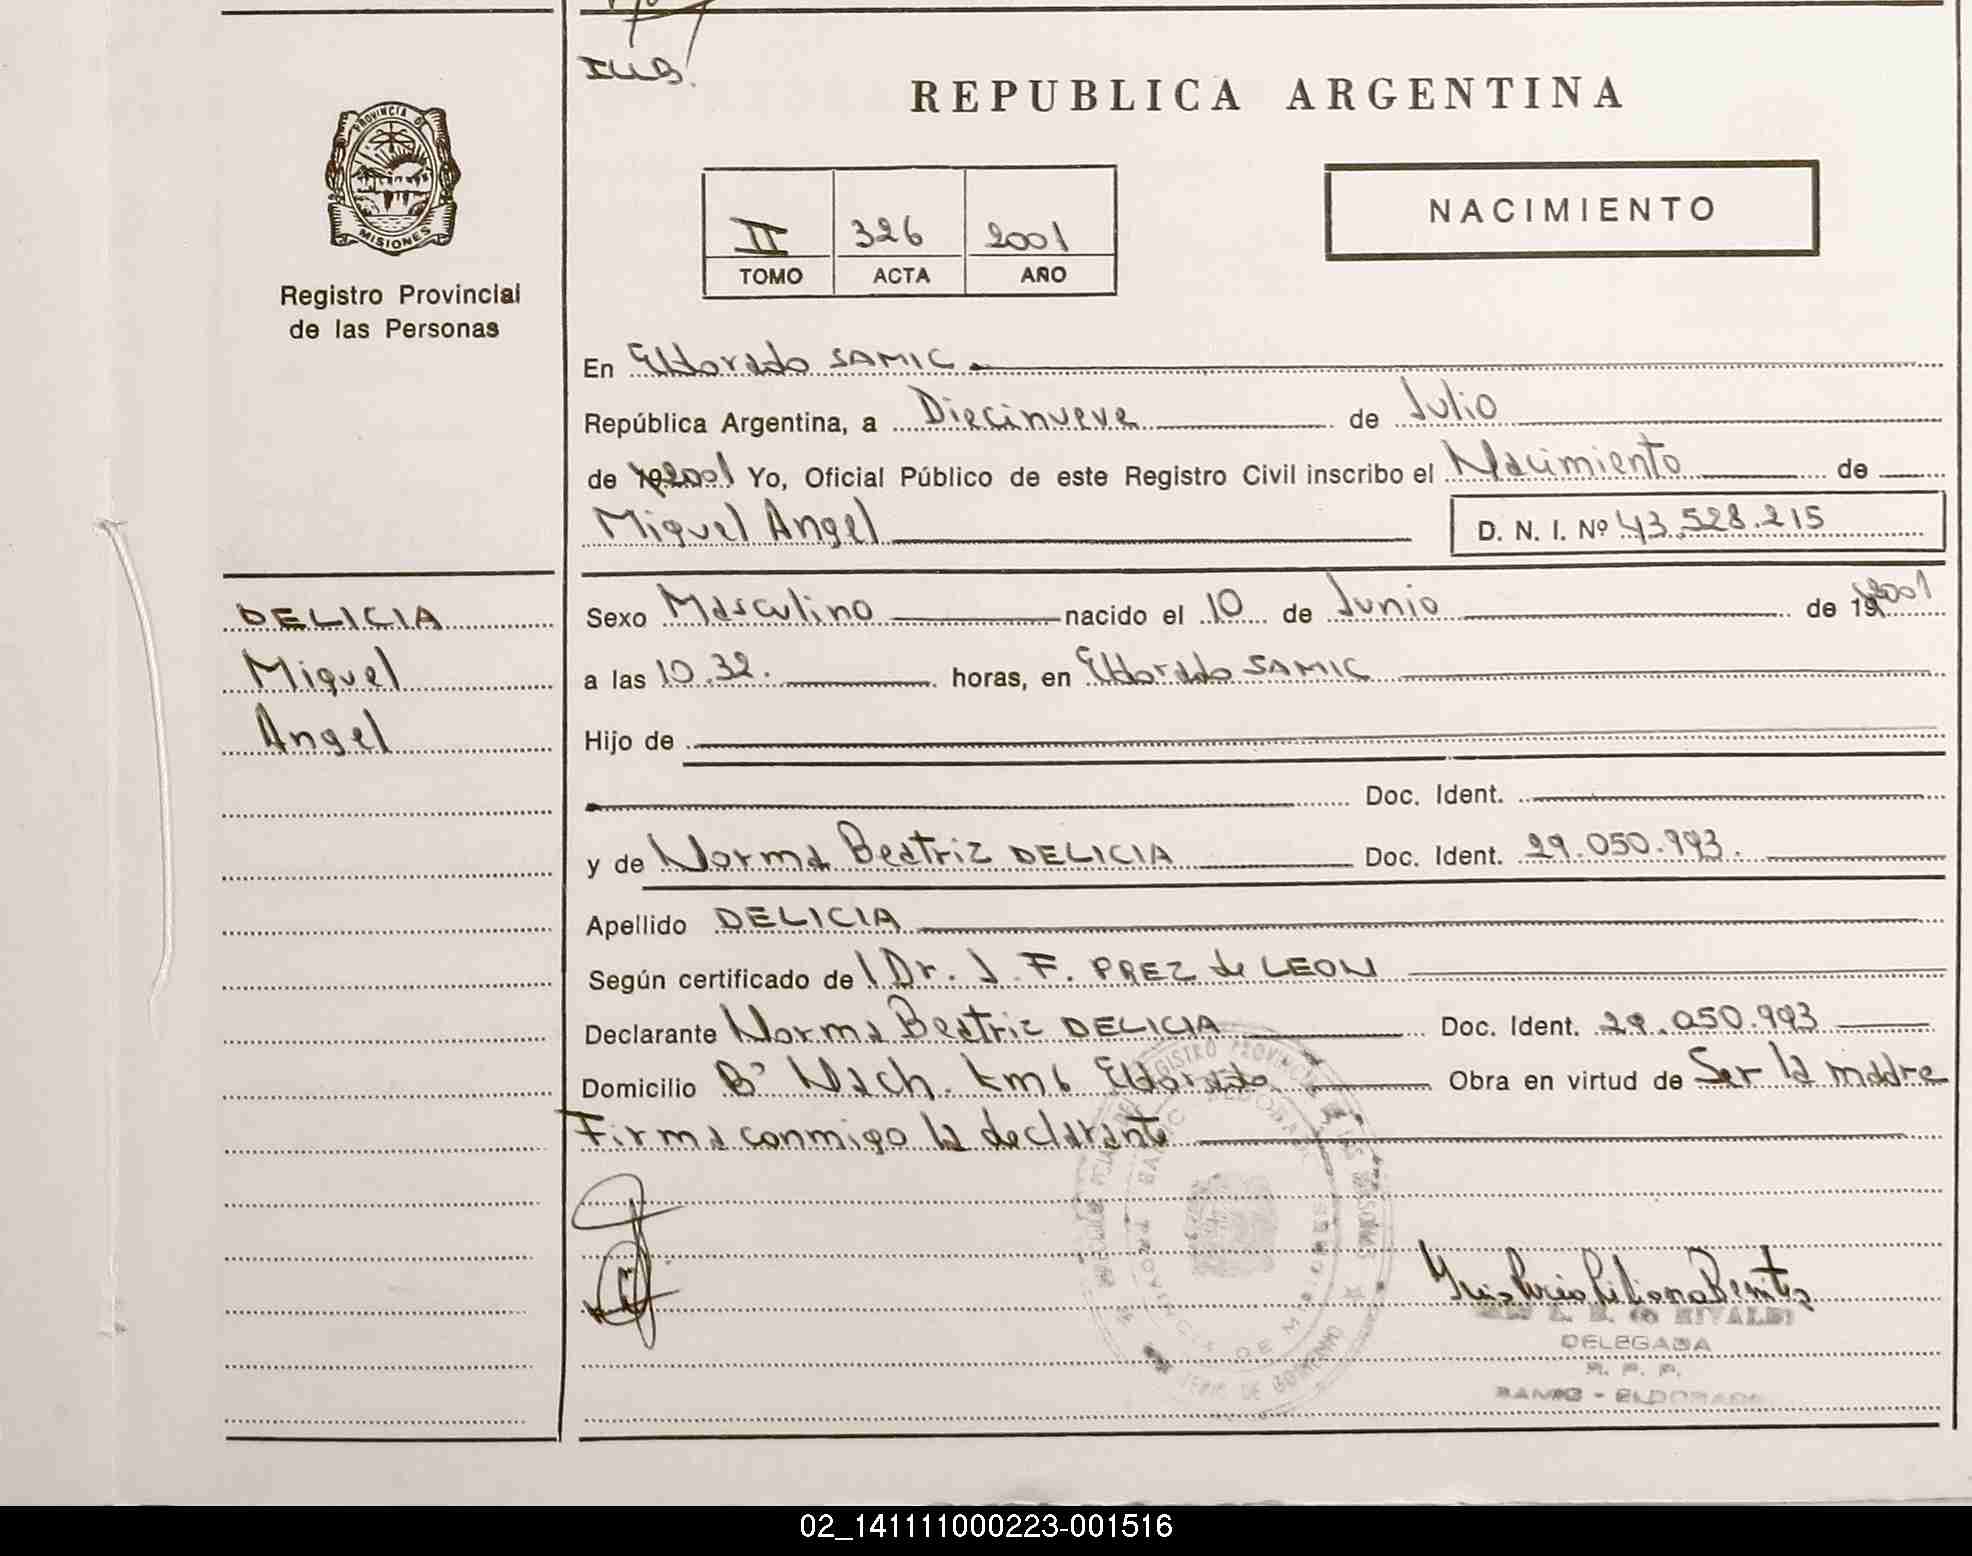 REPUBLICA ARGENTINA
PROVINCIA DE
MISIONES
Registro Provincial
de las Personas
II 326 2001
TOMO ACTA AÑO
NACIMIENTO
En Eldorado SAMIC
República Argentina, a Diecinueve de Julio
de 2001 Yo, Oficial Público de este Registro Civil inscribo el Nacimiento de
Miguel Angel D. N. I. Nº 43.528.215
DELICIA
Miguel
Angel
Sexo Masculino nacido el 10 de Junio de 19 2001
a las 10.32. horas, en Eldorado SAMIC
Hijo de
Doc. Ident.
y de Norma Beatriz DELICIA Doc. Ident. 29.050.993.
Apellido DELICIA
Según certificado de Dr. J. F. PREZ de LEON
Declarante Norma Beatriz DELICIA Doc. Ident. 29.050.993
Domicilio Bº Nach. km 6 Eldorado Obra en virtud de Ser la madre
Firma conmigo la declarante
RIVALDI
DELEGADA
R. P. P.
SAMIC - ELDORADO
02_141111000223-001516